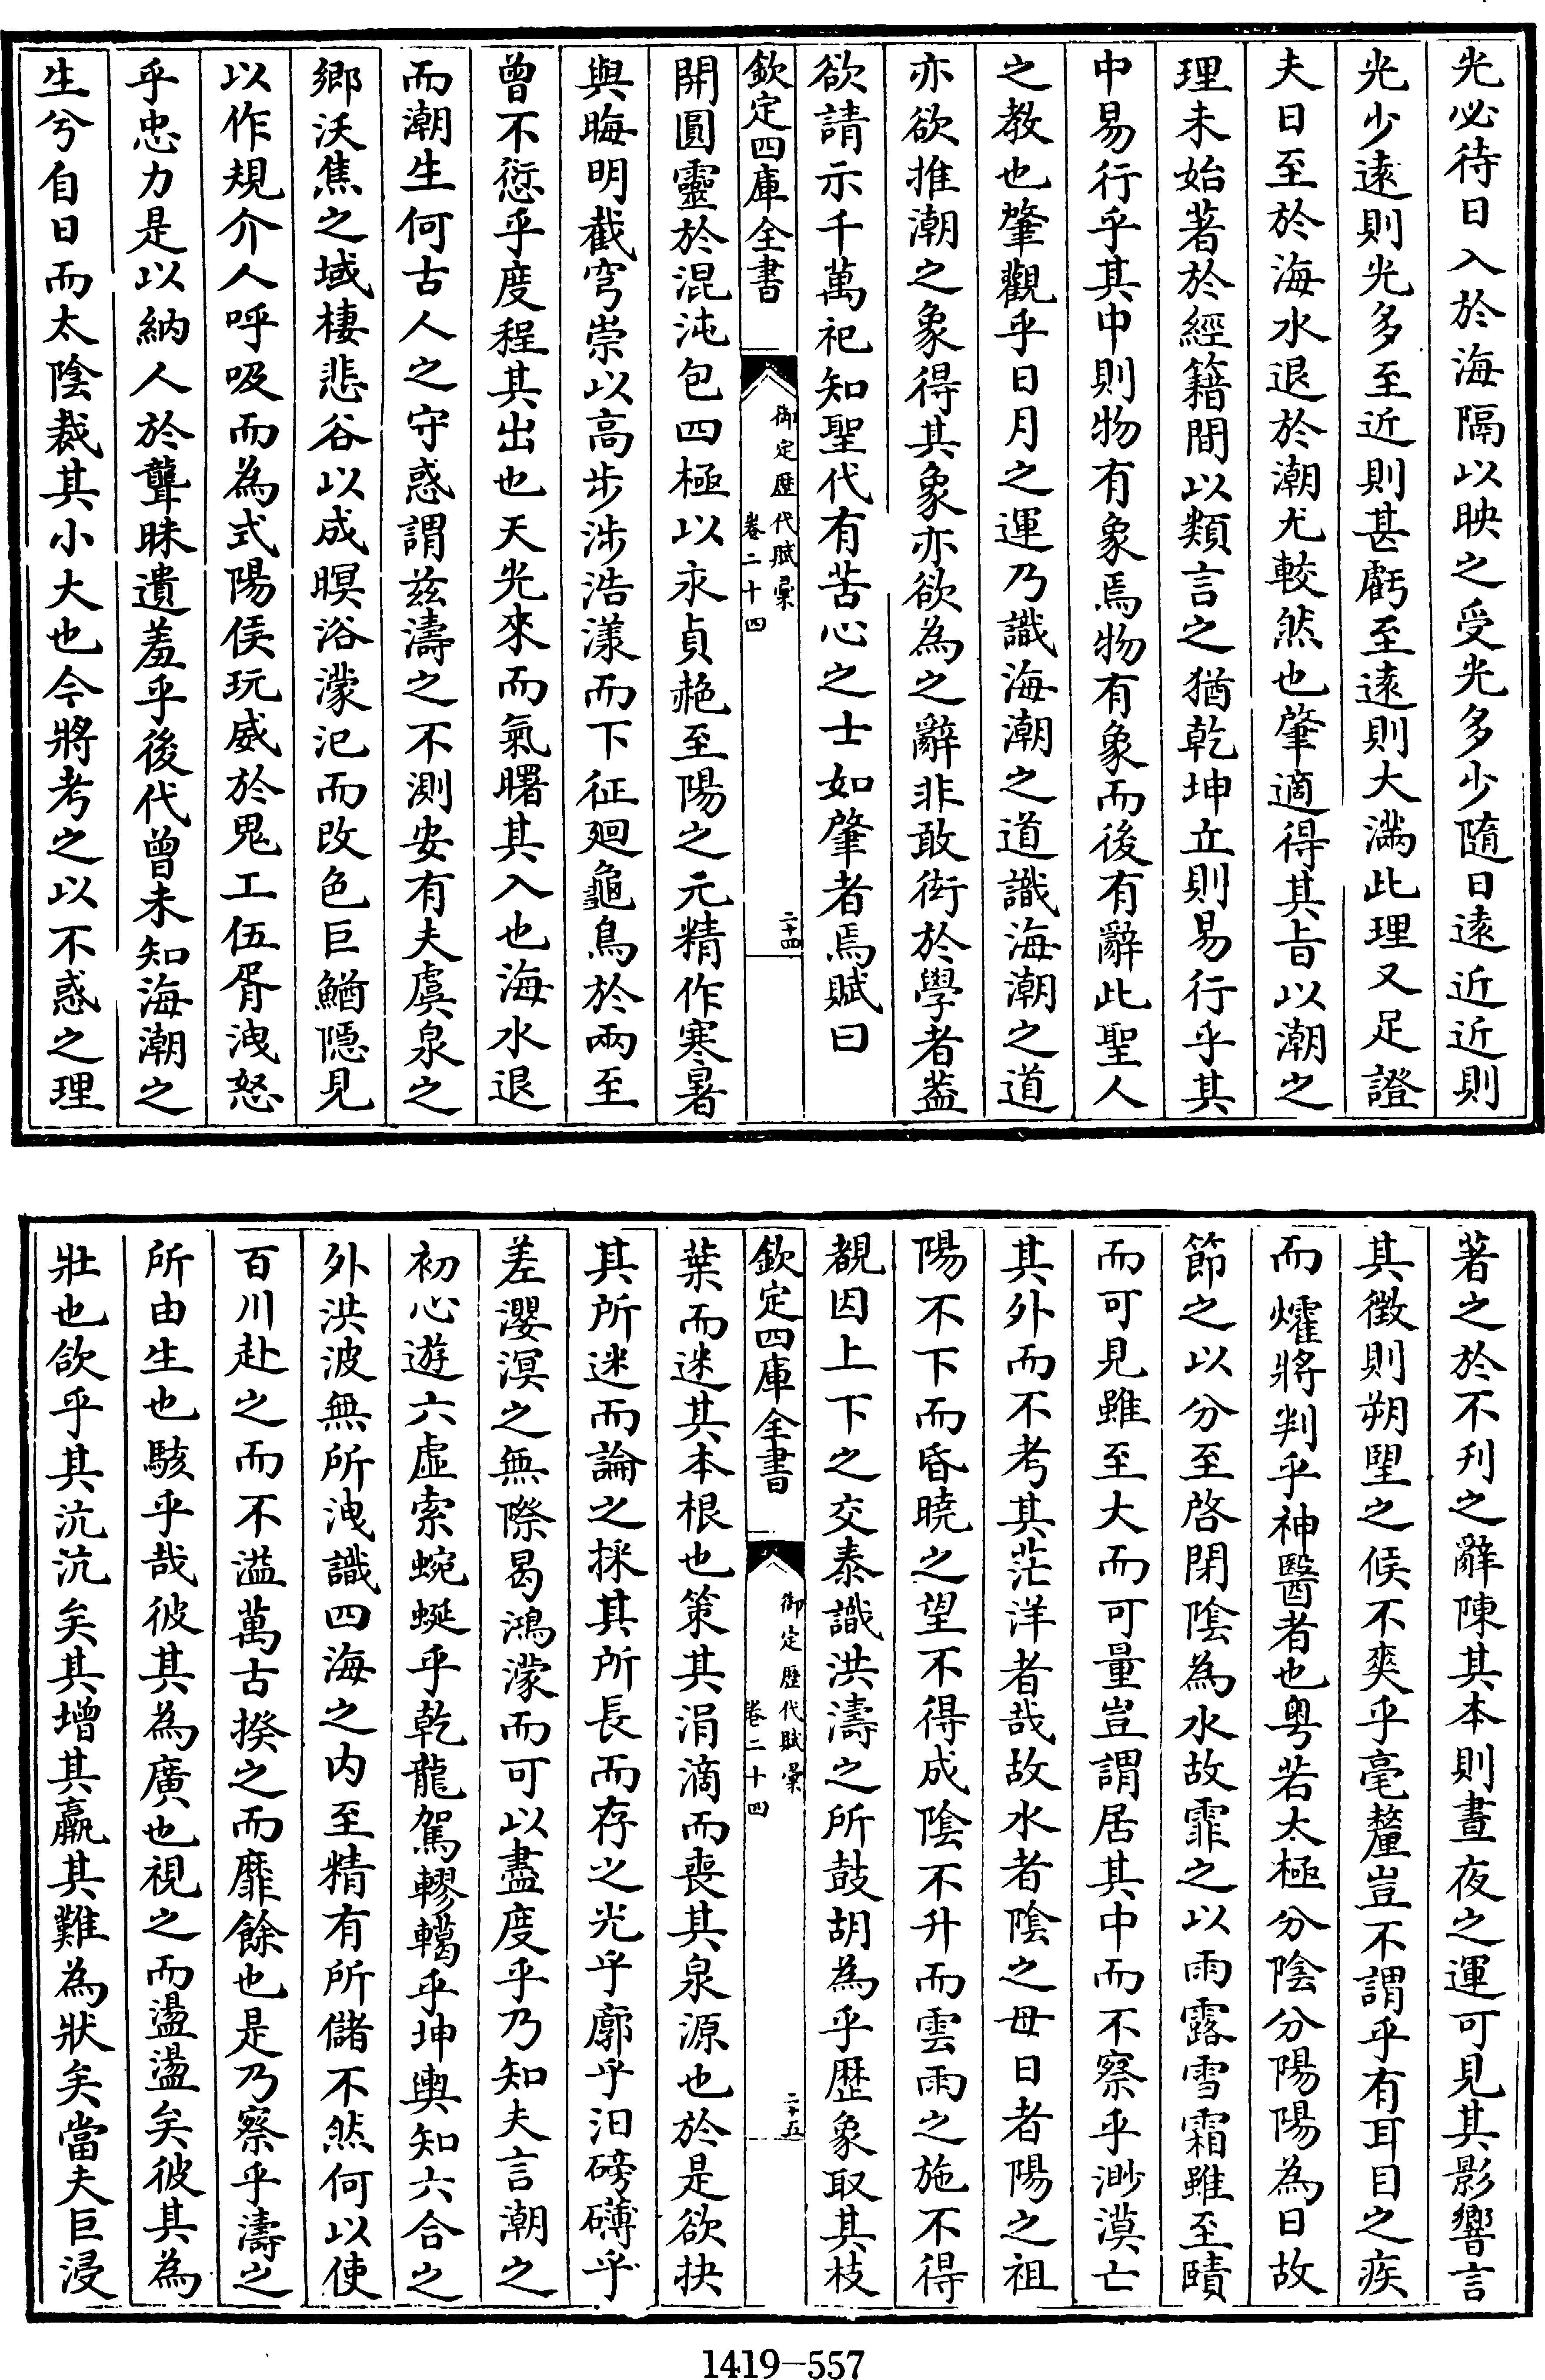 光必待日入於海隔以映之受光多少隨日遠近近則
光少遠則光多至近則甚虧至遠則大滿此理又足證
夫日至於海水退於潮尤較然也肇適得其旨以潮之
理未始著於經籍間以類言之猶乾坤立則易行乎其
中易行乎其中則物有象焉物有象而後有辭此聖人
之教也肇觀乎日月之運乃識海潮之道識海潮之道
亦欲推潮之象得其象亦欲為之辭非敢衒於學者葢
欲請示千萬祀知聖代有苦心之士如肇者焉賦曰
欽定四庫全書
御定歷代賦彙
卷二十四
二十四
開圓靈於混沌包四極以永貞赩至陽之元精作寒暑
與晦明截穹崇以高步涉浩漾而下征廻龜鳥於兩至
曾不愆乎度程其出也天光來而氣曙其入也海水退
而潮生何古人之守惑謂兹濤之不測安有夫虞泉之
鄉沃焦之域棲悲谷以成暝浴濛汜而改色巨鰌隱見
以作規介人呼吸而為式陽侯玩威於鬼工伍胥洩怒
乎忠力是以納人於聾昧遺羞乎後代曾未知海潮之
生兮自日而太陰裁其小大也今將考之以不惑之理
著之於不刋之辭陳其本則晝夜之運可見其影響言
其徵則朔朢之候不爽乎毫釐豈不謂乎有耳目之疾
而爟將判乎神醫者也粤若太極分陰分陽陽為日故
節之以分至啓閉陰為水故霏之以雨露雪霜雖至賾
而可見雖至大而可量豈謂居其中而不察乎渺漠亡
其外而不考其茫洋者哉故水者陰之母日者陽之祖
陽不下而昏曉之望不得成陰不升而雲雨之施不得
覩因上下之交泰識洪濤之所鼓胡為乎歴象取其枝
欽定四庫全書
御定歷代賦彙
卷二十四
二十五
葉而迷其本根也策其涓滴而喪其泉源也於是欲抉
其所迷而論之採其所長而存之光乎廓乎汩磅礴乎
差瀴溟之無際曷鴻濛而可以盡度乎乃知夫言潮之
初心遊六虛索蜿蜒乎乾龍駕轇轕乎坤輿知六合之
外洪波無所洩識四海之内至精有所儲不然何以使
百川赴之而不溢萬古揆之而靡餘也是乃察乎濤之
所由生也駭乎哉彼其為廣也視之而盪盪矣彼其為
壯也欲乎其沆沆矣其增其贏其難為狀矣當夫巨浸
1419-557